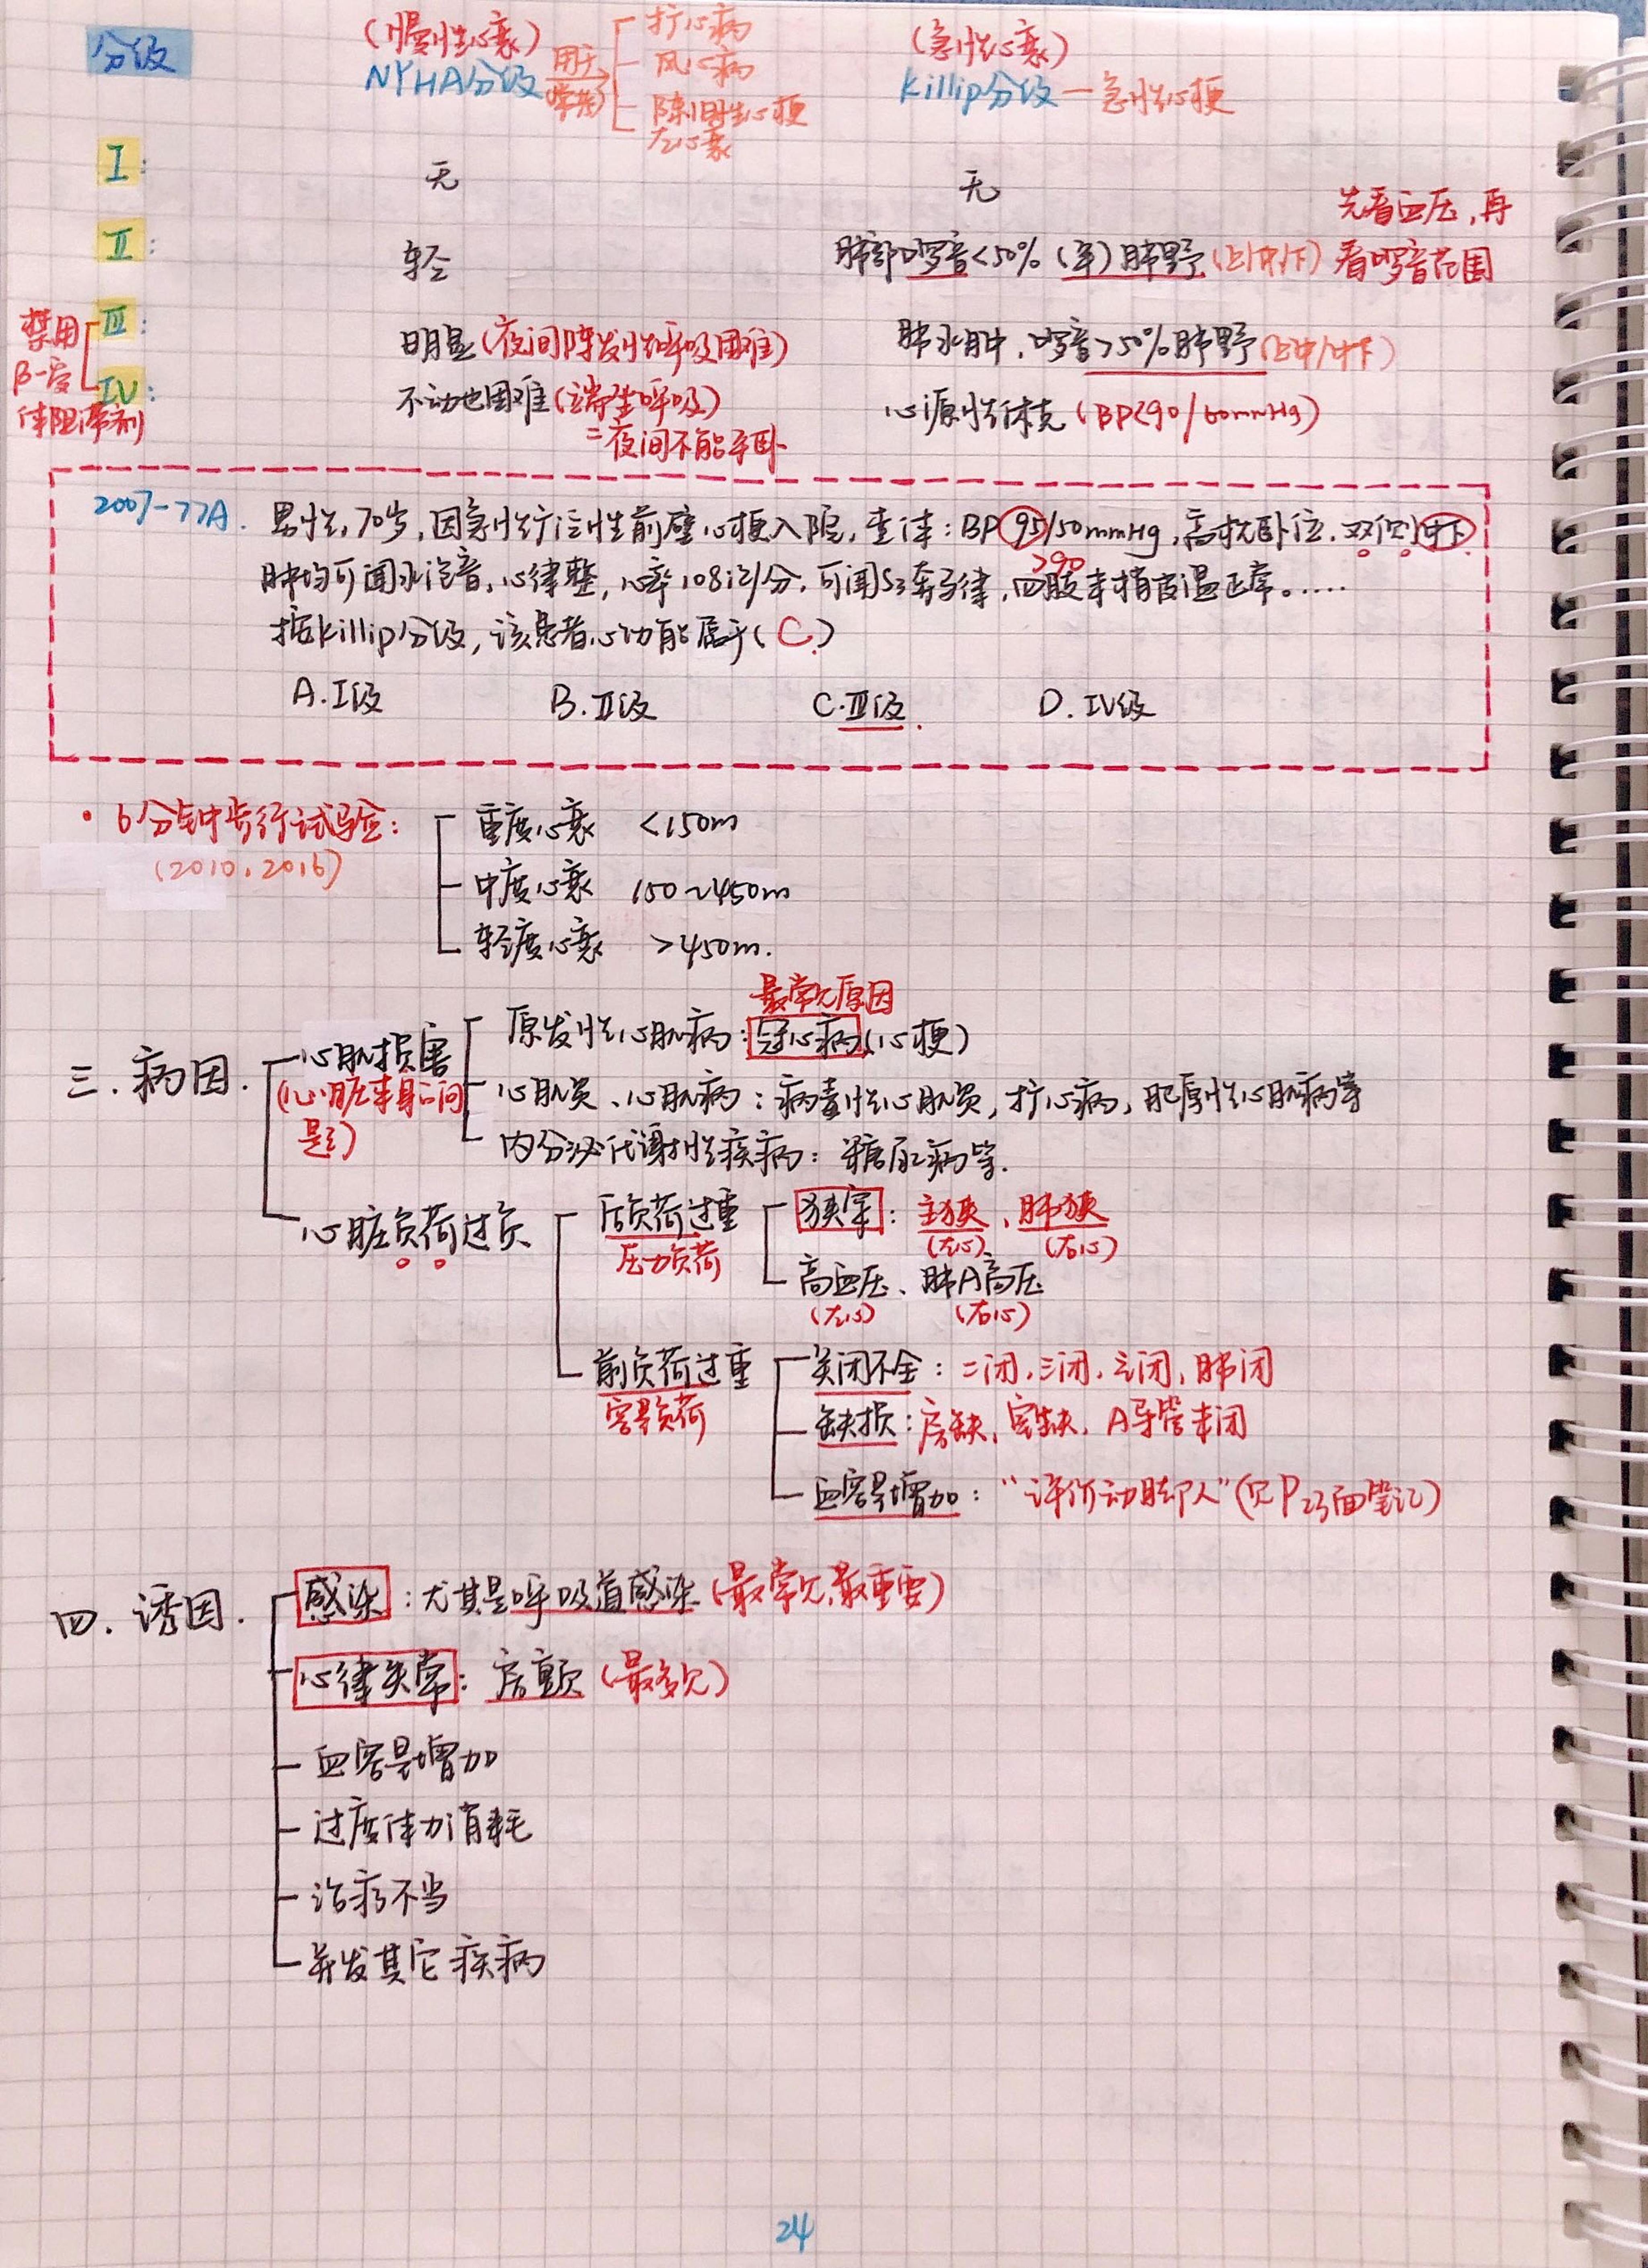 分级
(慢性心衰)
NYHA分级
用于
常考
扩心病
风心病
陈旧性心梗
左心衰
(急性心衰)
Killip分级—急性心梗
I:
无
无
II:
轻
肺部啰音<50%(半)肺野(上/中/下)
先看血压,再
看啰音范围
III:
明显(夜间阵发性呼吸困难)
肺水肿,啰音>50%肺野(上中/中下)
禁用
β-受
体阻滞剂
IV:
不动也困难(端坐呼吸)
=夜间不能平卧
心源性休克(BP<90/60mmHg)
2007-77A.男性,70岁,因急性广泛性前壁心梗入院,查体:BP 95/50mmHg,高枕卧位,双侧中下
>90
肺均可闻水泡音,心律整,心率108次/分,可闻S3奔马律,四肢末梢皮温正常。.....
按killip分级,该患者心功能属于(C.)
A.I级 B.II级 C.III级. D.IV级
·6分钟步行试验:
(2010,2016)
重度心衰 <150m
中度心衰 150~450m
轻度心衰 >450m.
三.病因.
心肌损害
(心脏本身问
题)
最常见原因
原发性心肌病:冠心病(心梗)
心肌炎、心肌病:病毒性心肌炎,扩心病,肥厚性心肌病等
内分泌代谢性疾病:糖尿病等.
心脏负荷过负
后负荷过重
压力负荷
狭窄:主狭、肺狭
(左心) (右心)
高血压、肺A高压
(左心) (右心)
前负荷过重
容量负荷
关闭不全:二闭,三闭,主闭,肺闭
缺损:房缺,室缺,A导管未闭
血容量增加:“评价动脚人”(见P23面笔记)
四.诱因.
感染:尤其是呼吸道感染(最常见,最重要)
心律失常:房颤(最多见)
血容量增加
过度体力消耗
治疗不当
并发其它疾病
24